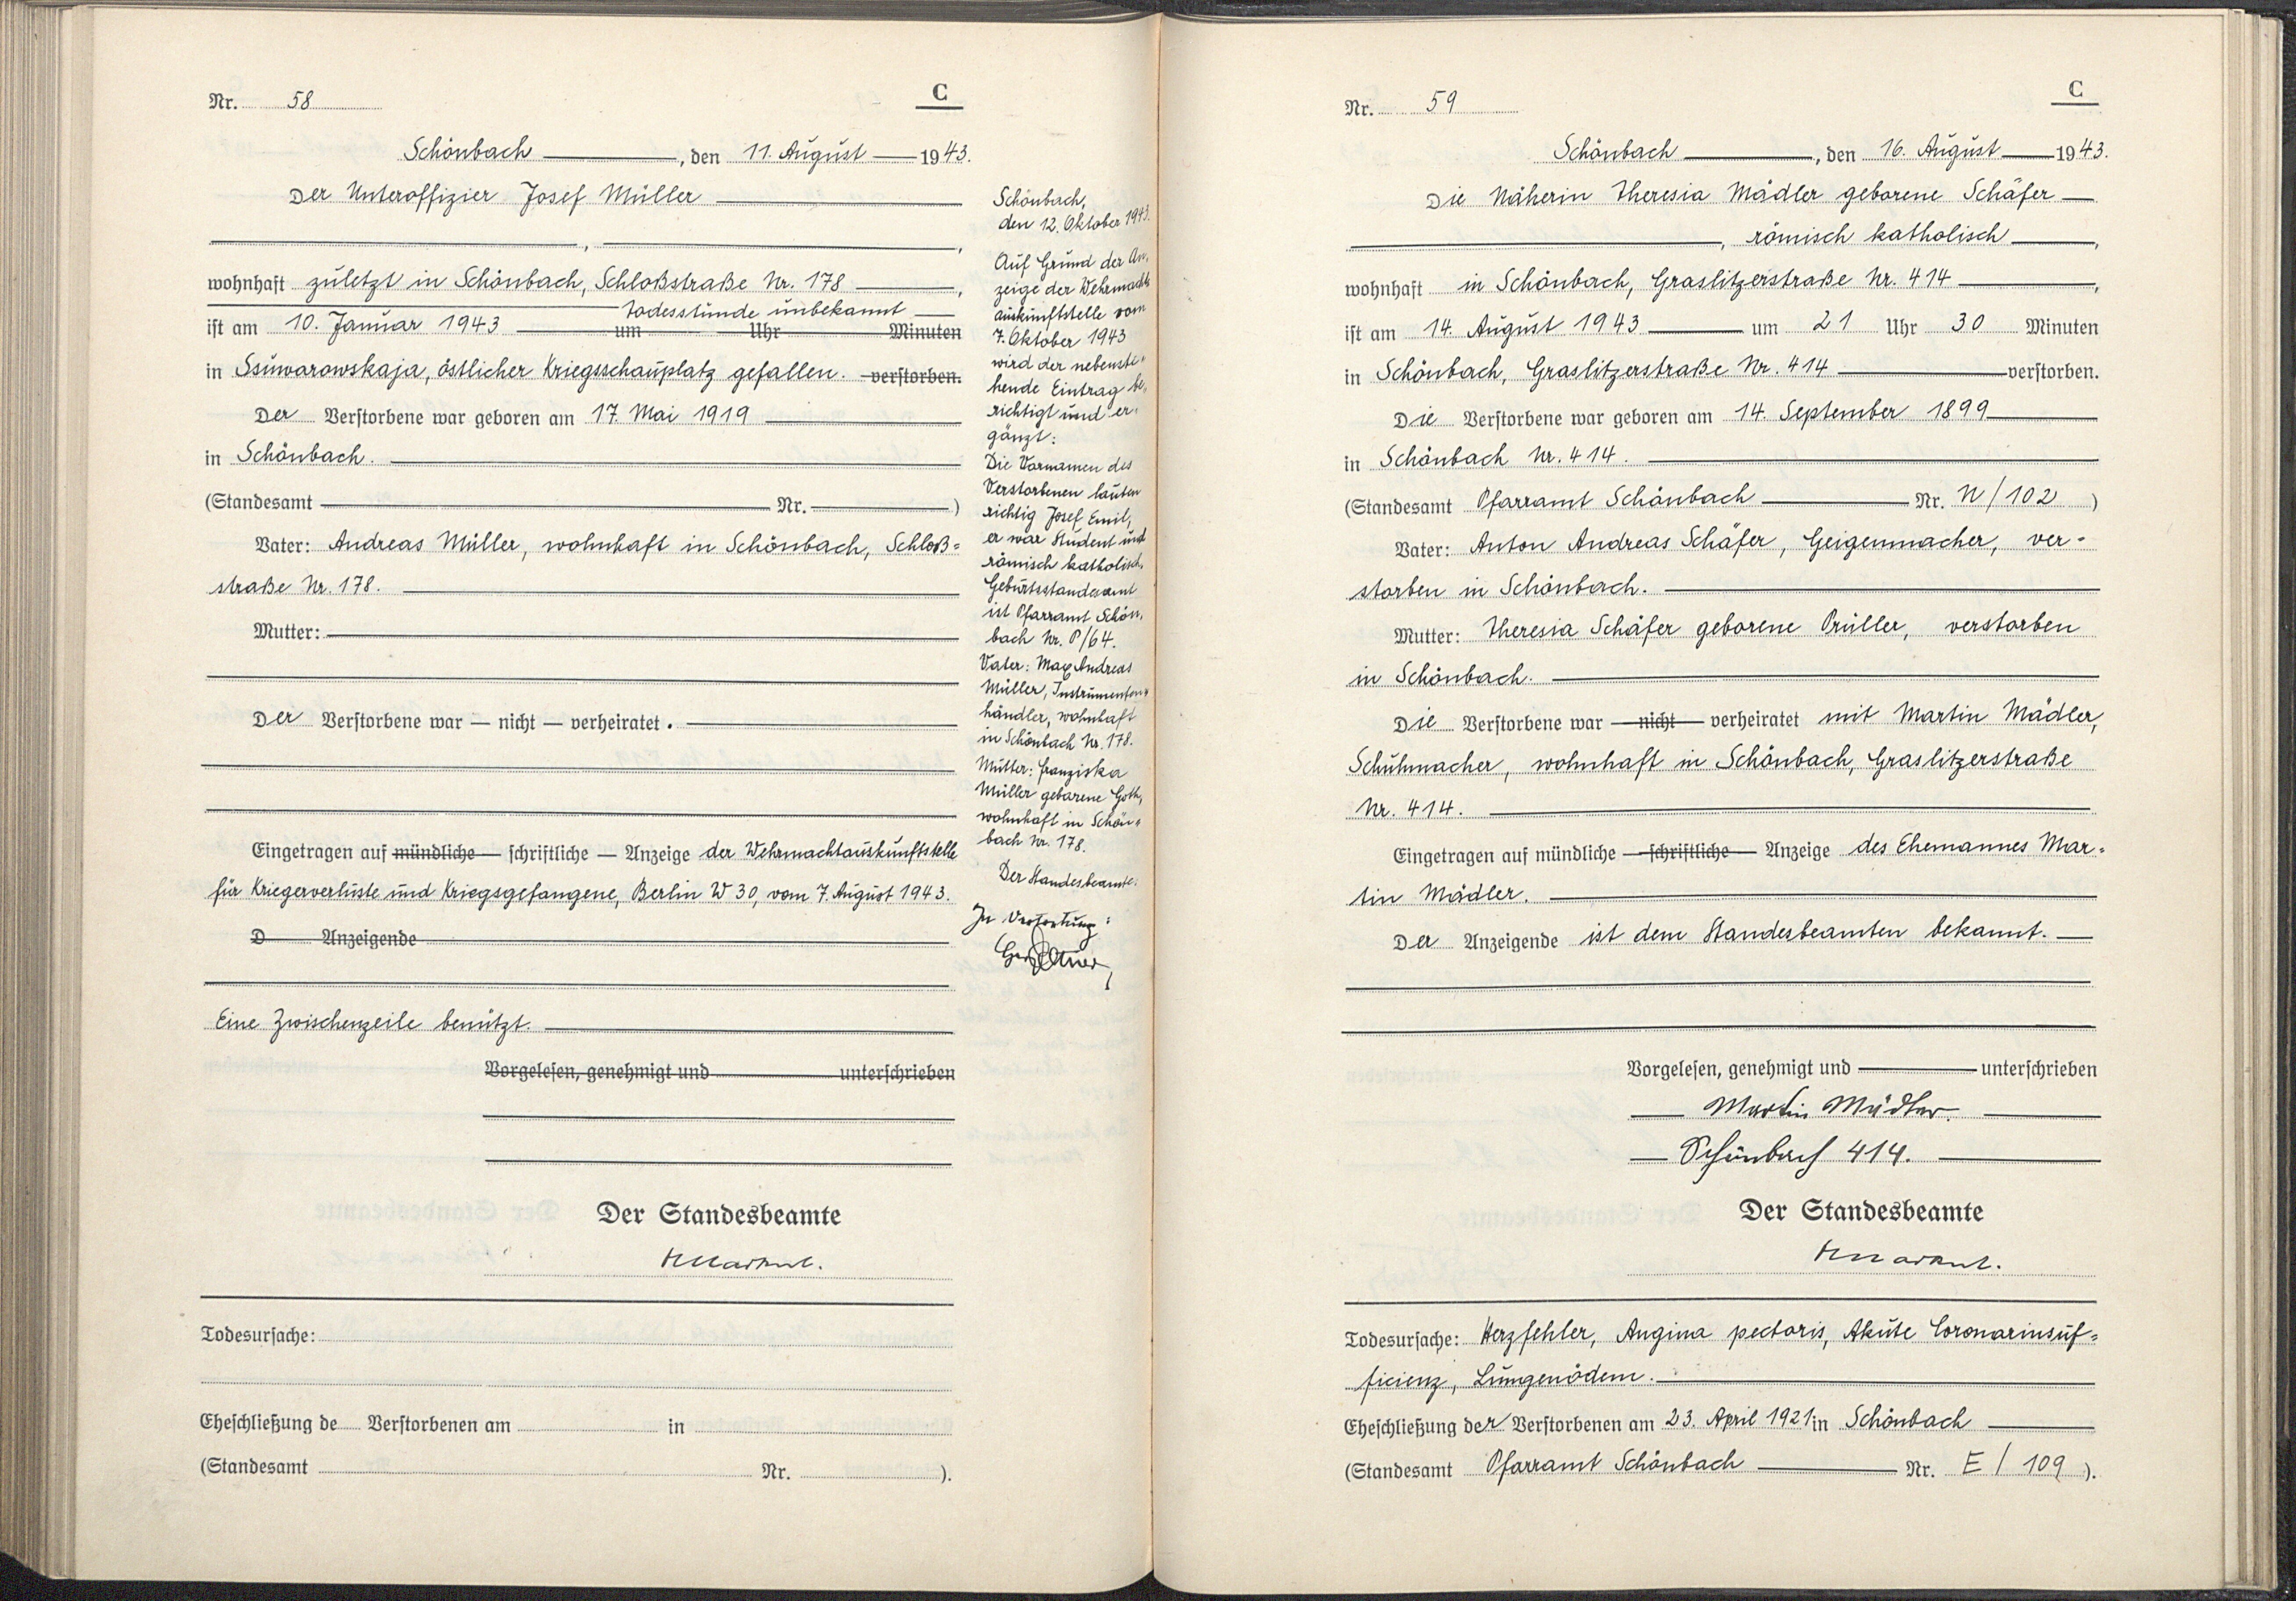 Nr. 58
C
Schönbach, den 11. August 1943.
Der Unteroffizier Josef Müller
, ,
wohnhaft zuletzt in Schönbach, Schloßstraße Nr. 178,
Todesstunde unbekannt
ist am 10. Januar 1943 um Uhr Minuten
in Ssuwarowskaja, östlicher Kriegsschauplatz gefallen. verstorben.
Der Verstorbene war geboren am 17. Mai 1919
in Schönbach.
(Standesamt Nr. )
Vater: Andreas Müller, wohnhaft in Schönbach, Schloß=
straße Nr. 178.
Mutter:
Der Verstorbene war — nicht — verheiratet.
Eingetragen auf mündliche — schriftliche — Anzeige der Wehrmachtauskunftstelle
für Kriegerverluste und Kriegsgefangene, Berlin W 30, vom 7. August 1943.
D Anzeigende
Eine Zwischenzeile benützt.
Vorgelesen, genehmigt und unterschrieben
Der Standesbeamte
Todesursache:
Eheschließung de Verstorbenen am in
(Standesamt Nr. ).
Schönbach,
den 12. Oktober 1943.
Auf Grund der An=
zeige der Wehrmacht=
auskunftstelle vom
7. Oktober 1943
wird der nebenste=
hende Eintrag be=
richtigt und er=
gänzt:
Die Vornamen des
Verstorbenen lauten
richtig Josef Emil,
er war Student und
römisch katholisch.
Geburtsstandesamt
ist Pfarramt Schön=
bach Nr. P/64.
Vater: Max Andreas
Müller, Instrumenten=
händler, wohnhaft
in Schönbach Nr. 178.
Mutter: Franziska
Müller geborene Goth,
wohnhaft in Schön=
bach Nr. 178.
Der Standesbeamte:
In Vertretung:
Nr. 59
C
Schönbach, den 16. August 1943.
Die Näherin Theresia Mädler geborene Schäfer
, römisch katholisch,
wohnhaft in Schönbach, Graslitzerstraße Nr. 414,
ist am 14. August 1943 um 21 Uhr 30 Minuten
in Schönbach, Graslitzerstraße Nr. 414 verstorben.
Die Verstorbene war geboren am 14. September 1899
in Schönbach Nr. 414.
(Standesamt Pfarramt Schönbach Nr. N/102 )
Vater: Anton Andreas Schäfer, Geigenmacher, ver=
storben in Schönbach.
Mutter: Theresia Schäfer geborene Prüller, verstorben
in Schönbach.
Die Verstorbene war — nicht — verheiratet mit Martin Mädler,
Schuhmacher, wohnhaft in Schönbach, Graslitzerstraße
Nr. 414.
Eingetragen auf mündliche — schriftliche — Anzeige des Ehemannes Mar=
tin Mädler.
Der Anzeigende ist dem Standesbeamten bekannt.
Vorgelesen, genehmigt und unterschrieben
Martin Mädler.
Schönbach 414.
Der Standesbeamte
Todesursache: Herzfehler, Angina pectoris, Akute Coronarinsuf=
ficienz, Lungenödem.
Eheschließung der Verstorbenen am 23. April 1921 in Schönbach
(Standesamt Pfarramt Schönbach Nr. E / 109 ).